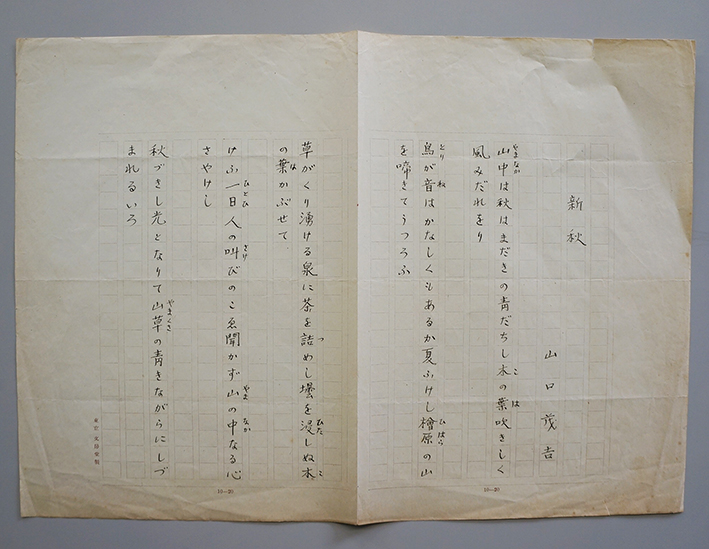 新秋
山口茂吉
山中は秋はまだきの青だちし木の葉吹きしく
やまなか
こ
は
風みだれをり
鳥が音はかなしくもあるか夏ふけし檜原の山
とり
ね
ひはら
を啼きてうつろふ
10—20
草がくり湧ける泉に茶を詰めし壜を浸しぬ木
つ
ひた
こ
の葉かぶせて
は
けふ一日人の叫びのこゑ聞かず山の中なる心
ひとひ
さけ
やま
なか
さやけし
秋づきし光となりて山草の青きながらにしづ
やまくさ
まれるいろ
10—20